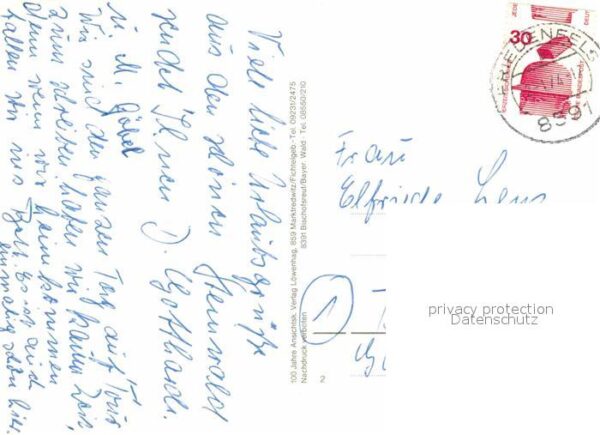 Viele liebe Urlaubsgrüße
aus dem schönen Steinwald
sendet Ihnen D. Gotthardt.
u. M. Göbel
Wir sind den ganzen Tag auf Tour
zum schreiben haben wir kaum Zeit,
denn wenn wir heim kommen
fallen wir ins Bett. Es ist auch
einmalig schön hier.
100 Jahre Ansichtsk. Verlag Löwenhag, 859 Marktredwitz/Fichtelgeb · Tel. 09231/2475
Nachdruck verboten 8391 Bischofsreut/Bayer. Wald · Tel. 08550/210
2
30
FRIEDENFELS
8591
Frau
Elfriede
1
privacy protection
Datenschutz